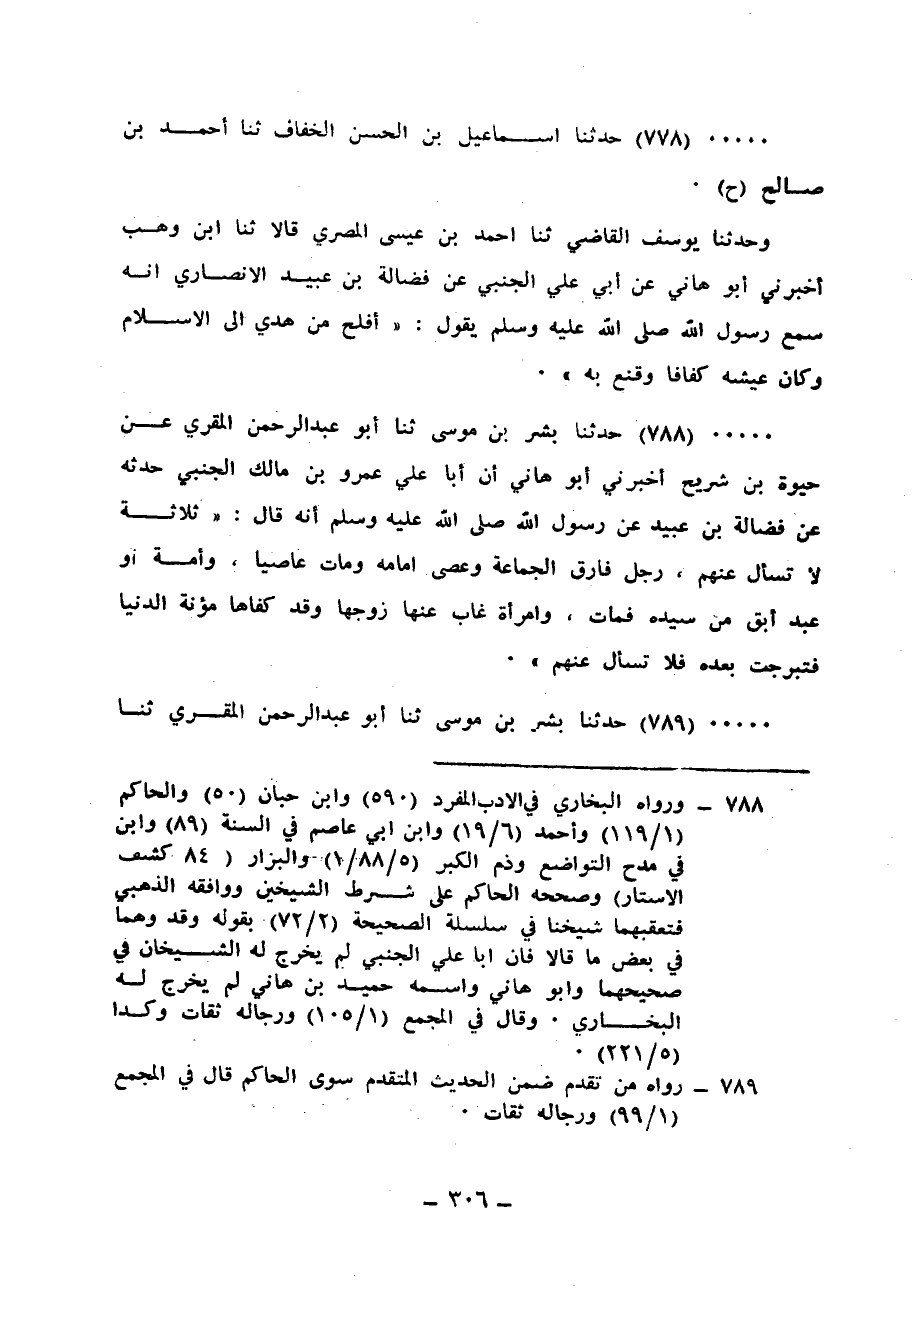 ٠٠٠٠٠ (٧٧٨) حدثنا اسماعيل بن الحسن الخفاف ثنا أحمد بن
صالح (ح) ٠
وحدثنا يوسف القاضي ثنا احمد بن عيسى المصري قالا ثنا ابن وهب
أخبرني أبو هاني عن أبي علي الجنبي عن فضالة بن عبيد الانصاري انه
سمع رسول الله صلى الله عليه وسلم يقول : « أفلح من هدي الى الاسلام
وكان عيشه كفافا وقنع به » ٠
٠٠٠٠٠ (٧٨٨) حدثنا بشر بن موسى ثنا أبو عبدالرحمن المقري عن
حيوة بن شريح أخبرني أبو هاني أن أبا علي عمرو بن مالك الجنبي حدثه
عن فضالة بن عبيد عن رسول الله صلى الله عليه وسلم أنه قال : « ثلاثة
لا تسأل عنهم ، رجل فارق الجماعة وعصى امامه ومات عاصيا ، وأمة أو
عبد أبق من سيده فمات ، وامرأة غاب عنها زوجها وقد كفاها مؤنة الدنيا
فتبرجت بعده فلا تسأل عنهم » ٠
٠٠٠٠٠ (٧٨٩) حدثنا بشر بن موسى ثنا أبو عبدالرحمن المقري ثنا
٧٨٨ – ورواه البخاري في الادب المفرد (٥٩٠) وابن حبان (٥٠) والحاكم
(١١٩/١) وأحمد (١٩/٦) وابن ابي عاصم في السنة (٨٩) وابن
في مدح التواضع وذم الكبر (١/٨٨/٥) والبزار ( ٨٤ كشف
الاستار) وصححه الحاكم على شرط الشيخين ووافقه الذهبي
فتعقبهما شيخنا في سلسلة الصحيحة (٧٢/٢) بقوله وقد وهما
في بعض ما قالا فان ابا علي الجنبي لم يخرج له الشيخان في
صحيحهما وابو هاني واسمه حميد بن هاني لم يخرج له
البخاري ٠ وقال في المجمع (١٠٥/١) ورجاله ثقات وكذا
(٢٢١/٥) ٠
٧٨٩ – رواه من تقدم ضمن الحديث المتقدم سوى الحاكم قال في المجمع
(٩٩/١) ورجاله ثقات ٠
– ٣٠٦ –